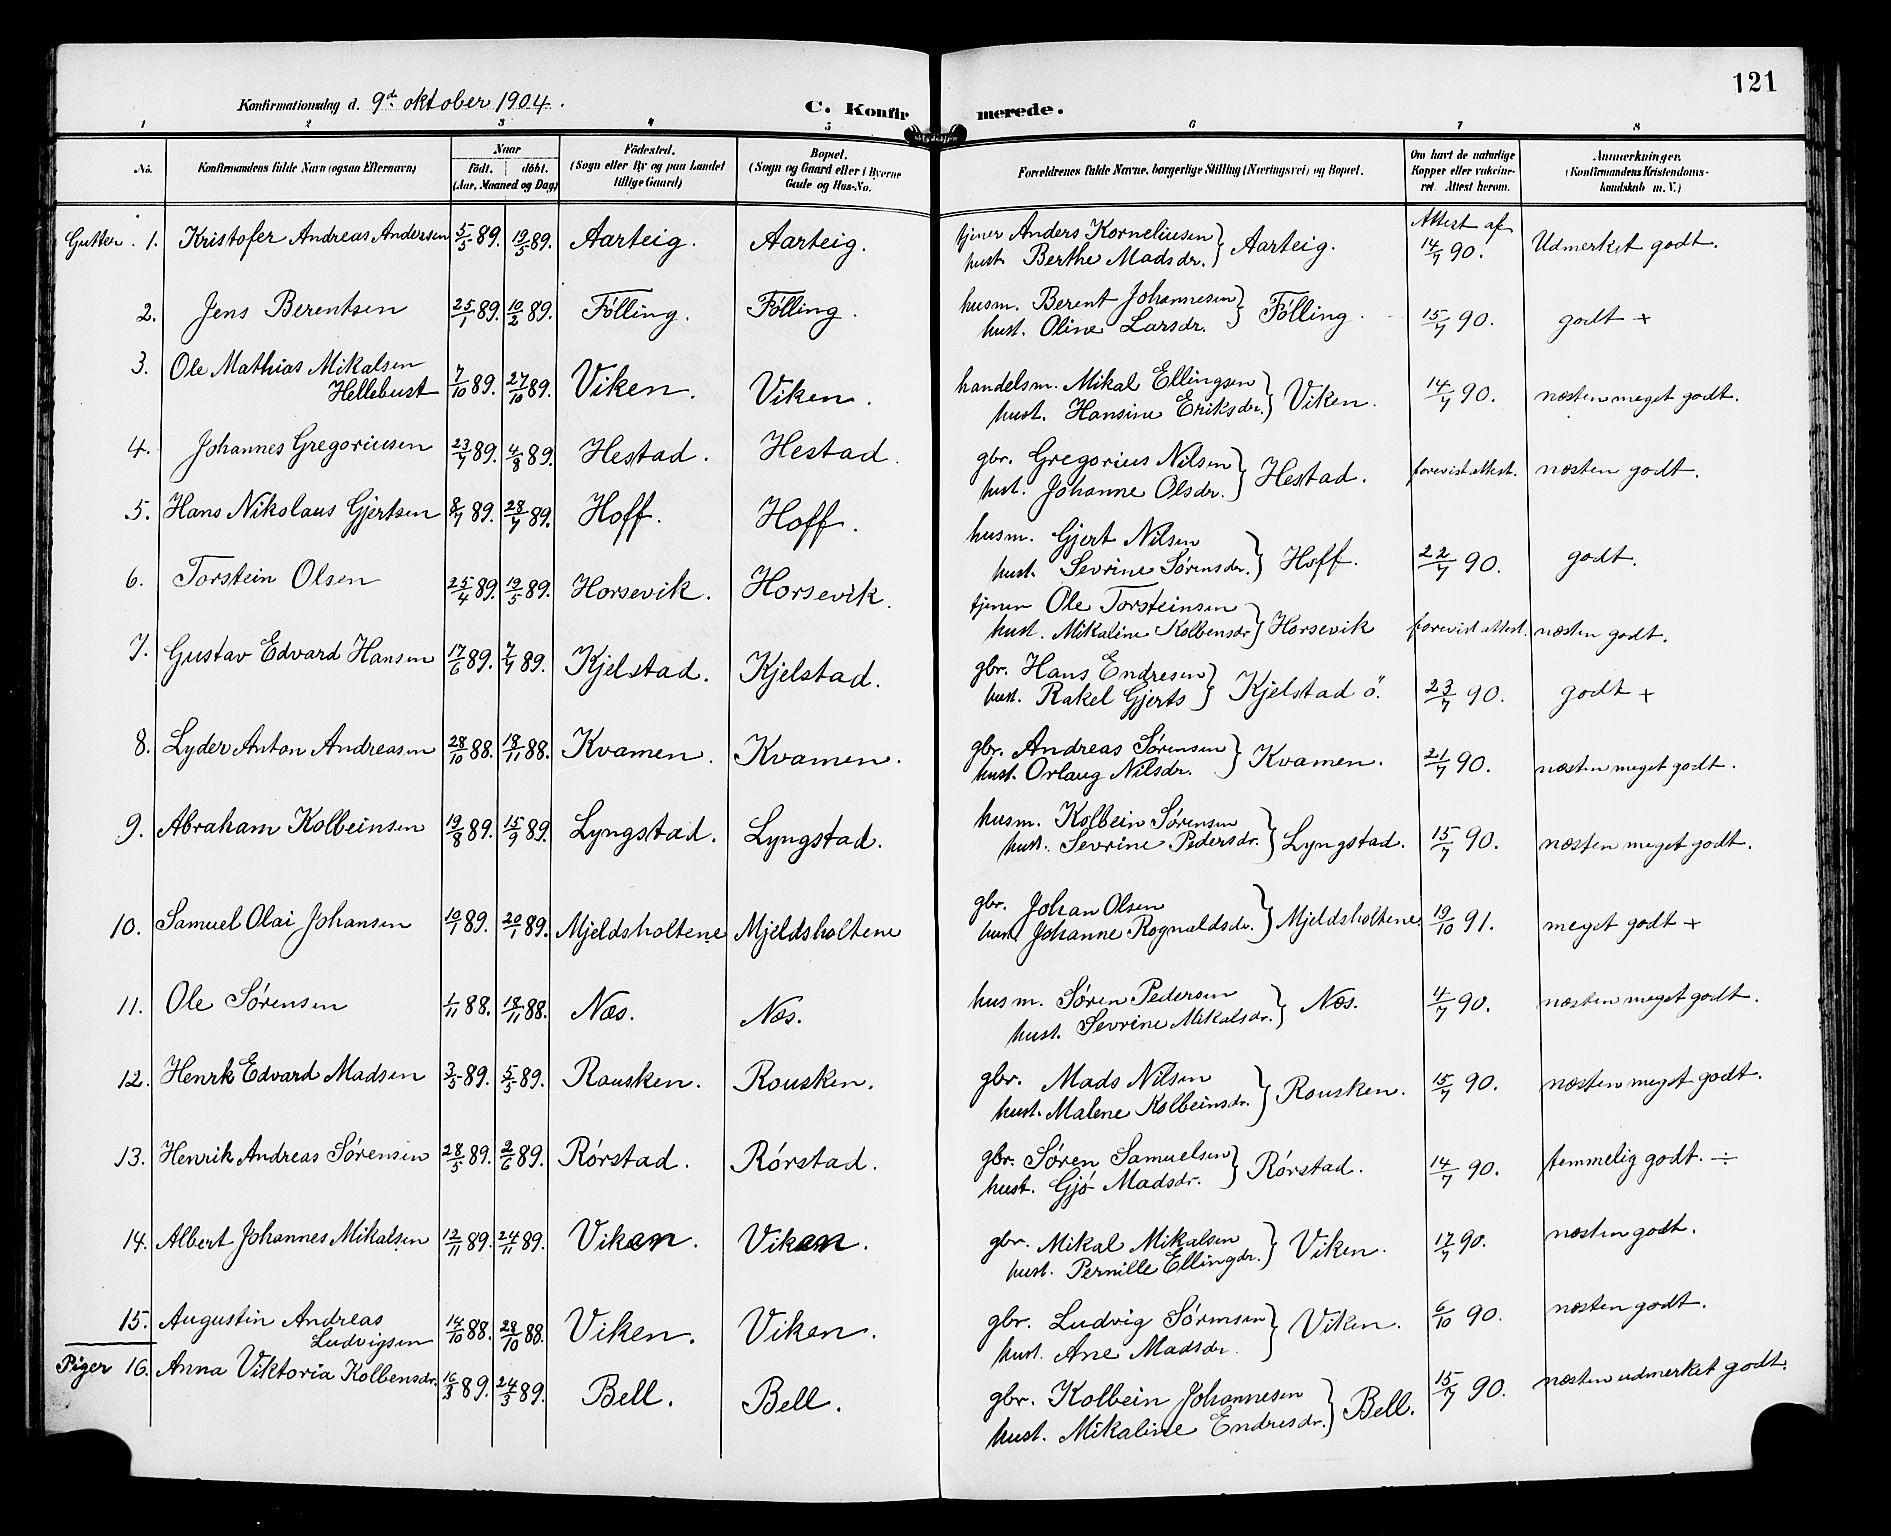 121
Konfirmationsdag d. 9de oktober 1904.
C. Konfirmerede.
1 2 3 4 5 6 7 8
No. Konfirmandens fulde Navn (ogsaa Efternavn) Naar født. døbt. (Aar, Maaned og Dag) Fødested. (Sogn eller By og paa Landet tillige Gaard) Bopæl. (Sogn og Gaard eller i Byerne Gade og Hus-No. Forældrenes fulde Navne, borgerlige Stilling (Næringsvei) og Bopæl. Om havt de naturlige Kopper eller vakcineret. Attest herom. Anmærkninger. (Konfirmandens Kristendomskundskab m. V.)
Gutter. 1. Kristofer Andreas Andersen 5/5 89. 19/5 89. Aarteig. Aarteig. tjener Anders Korneliusen hust. Berthe Madsdr. } Aarteig. Attest af 14/7 90. Udmerket godt.
2. Jens Berentsen 25/1 89. 10/2 89. Fölling. Fölling. husm. Berent Johannesen hust. Oline Larsdr. } Fölling. 15/7 90. godt +
3. Ole Mathias Mikalsen Hellebust 7/10 89. 27/10 89. Viken. Viken. handelsm. Mikal Ellingsen hust. Hansine Eriksdr. } Viken. 14/7 90. næsten meget godt.
4. Johannes Gregoriusen 23/7 89. 4/8 89. Hestad. Hestad. gbr. Gregorius Nilsen hust. Johanne Olsdr. } Hestad. forevist attest. næsten godt.
5. Hans Nikolaus Gjertsen 8/7 89. 28/7 89. Hoff. Hoff. husm. Gjert Nilsen hust. Sevrine Sørensdr. } Hoff. 22/7 90. godt.
6. Torstein Olsen 25/4 89. 19/5 89. Horsevik. Horsevik. tjener Ole Torsteinsen hust. Mikaline Kolbensdr } Horsevik forevist attest. næsten godt.
7. Gustav Edvard Hansen 17/6 89. 7/7 89. Kjelstad. Kjelstad. gbr. Hans Endresen hust. Rakel Gjerts } Kjelstad ö. 23/7 90. godt +
8. Lyder Anton Andreasen 28/10 88. 18/11 88. Kvamen. Kvamen. gbr. Andreas Sørensen hust. Orlaug Nilsdr. } Kvamen. 21/7 90. næsten meget godt.
9. Abraham Kolbeinsen 19/8 89. 15/9 89. Lyngstad. Lyngstad. husm. Kolbein Sørensen hust. Sevrine Pedersdr. } Lyngstad. 15/7 90. næsten meget godt.
10. Samuel Olai Johansen 10/1 89. 20/1 89. Mjeldsholtene Mjeldsholtene gbr. Johan Olsen hust. Johanne Rognaldsdr. } Mjeldsholtene. 19/10 91. meget godt +
11. Ole Sørensen 1/11 88. 18/11 88. Næs. Næs. husm. Søren Pedersen hust. Sevrine Mikalsdr. } Næs. 4/7 90. næsten meget godt.
12. Henrk Edvard Madsen 3/5 89. 5/5 89. Rousken. Rousken. gbr. Mads Nilsen hust. Malene Kolbeinsdr. } Rousken. 15/7 90. næsten meget godt.
13. Henrik Andreas Sørensen 28/5 89. 2/6 89. Rórstad. Rórstad. gbr. Søren Samuelsen hust. Gjó Madsdr. } Rórstad. 14/7 90. temmelig godt. ÷
14. Albert Johannes Mikalsen 12/11 89. 24/11 89. Viken. Viken. gbr. Mikal Mikalsen hust. Pernille Ellingdr. } Viken. 17/7 90. næsten godt.
15. Augustin Andreas Ludvigsen 14/10 88. 28/10 88. Viken. Viken. gbr. Ludvig Sørensen hust. Ane Madsdr. } Viken. 6/10 90. næsten godt.
Piger 16. Anna Viktoria Kolbensdr. 16/3 89. 24/3 89. Bell. Bell. gbr. Kolbein Johannesen hust. Mikaline Endresdr. } Bell. 15/7 90. næsten udmerket godt.